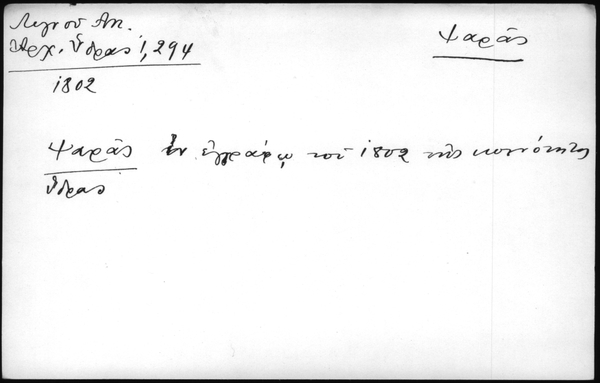 Λιγνού Αντ.
Αρχ. Ύδρας 1, 294
1802
Ψαρᾶς
Ψαρᾶς ἐν ἐγγράφῳ τοῦ 1802 τῆς κοινότητος
Ύδρας